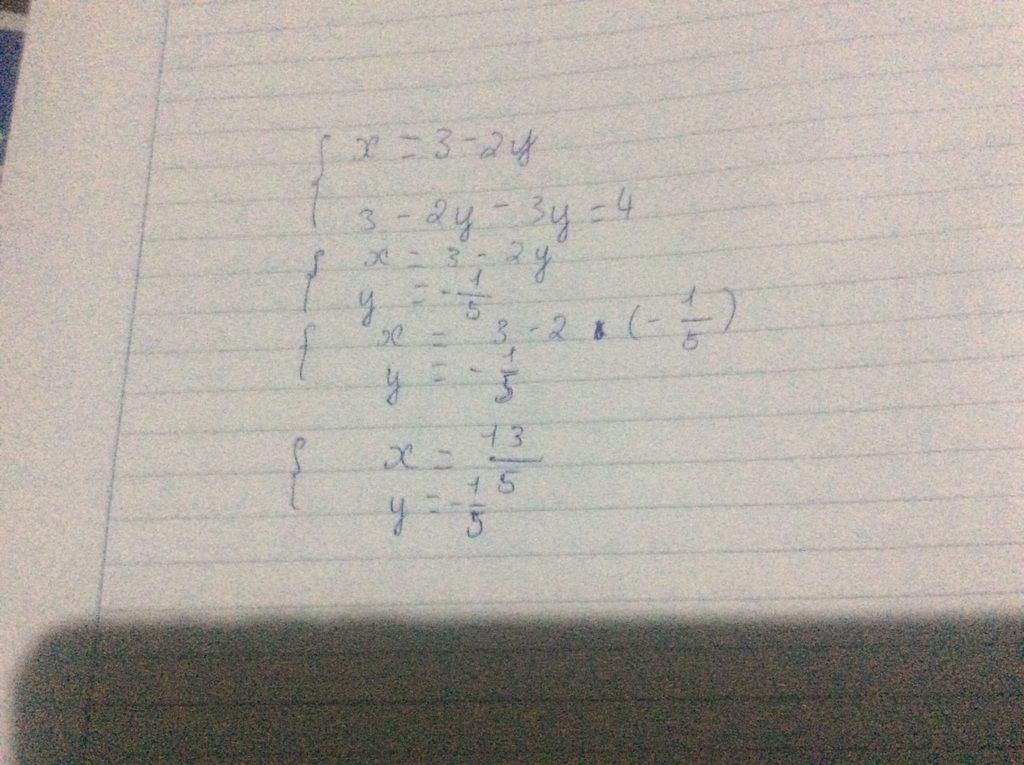 { x = 3 - 2y
3 - 2y - 3y = 4
{ x = 3 - 2y
y = -1/5
{ x = 3 - 2 . (-1/5)
y = -1/5
{ x = 13/5
y = -1/5